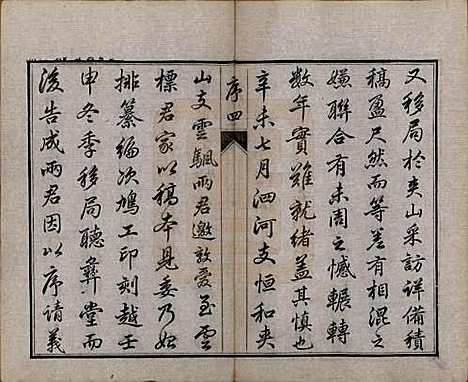 又移局於夾山采訪詳備積
稿盈尺然而等差有相混之
嫌聯合有未周之憾輾轉
數年實難就緒蓋其慎也
辛未七月泗河支恒和夾
序四
山支雲颿兩君邀敦愛至雲
標君家以稿本見委乃始
排纂編次鳩工印刻越壬
申冬季移局聽彝堂而
後告成兩君因以序請義